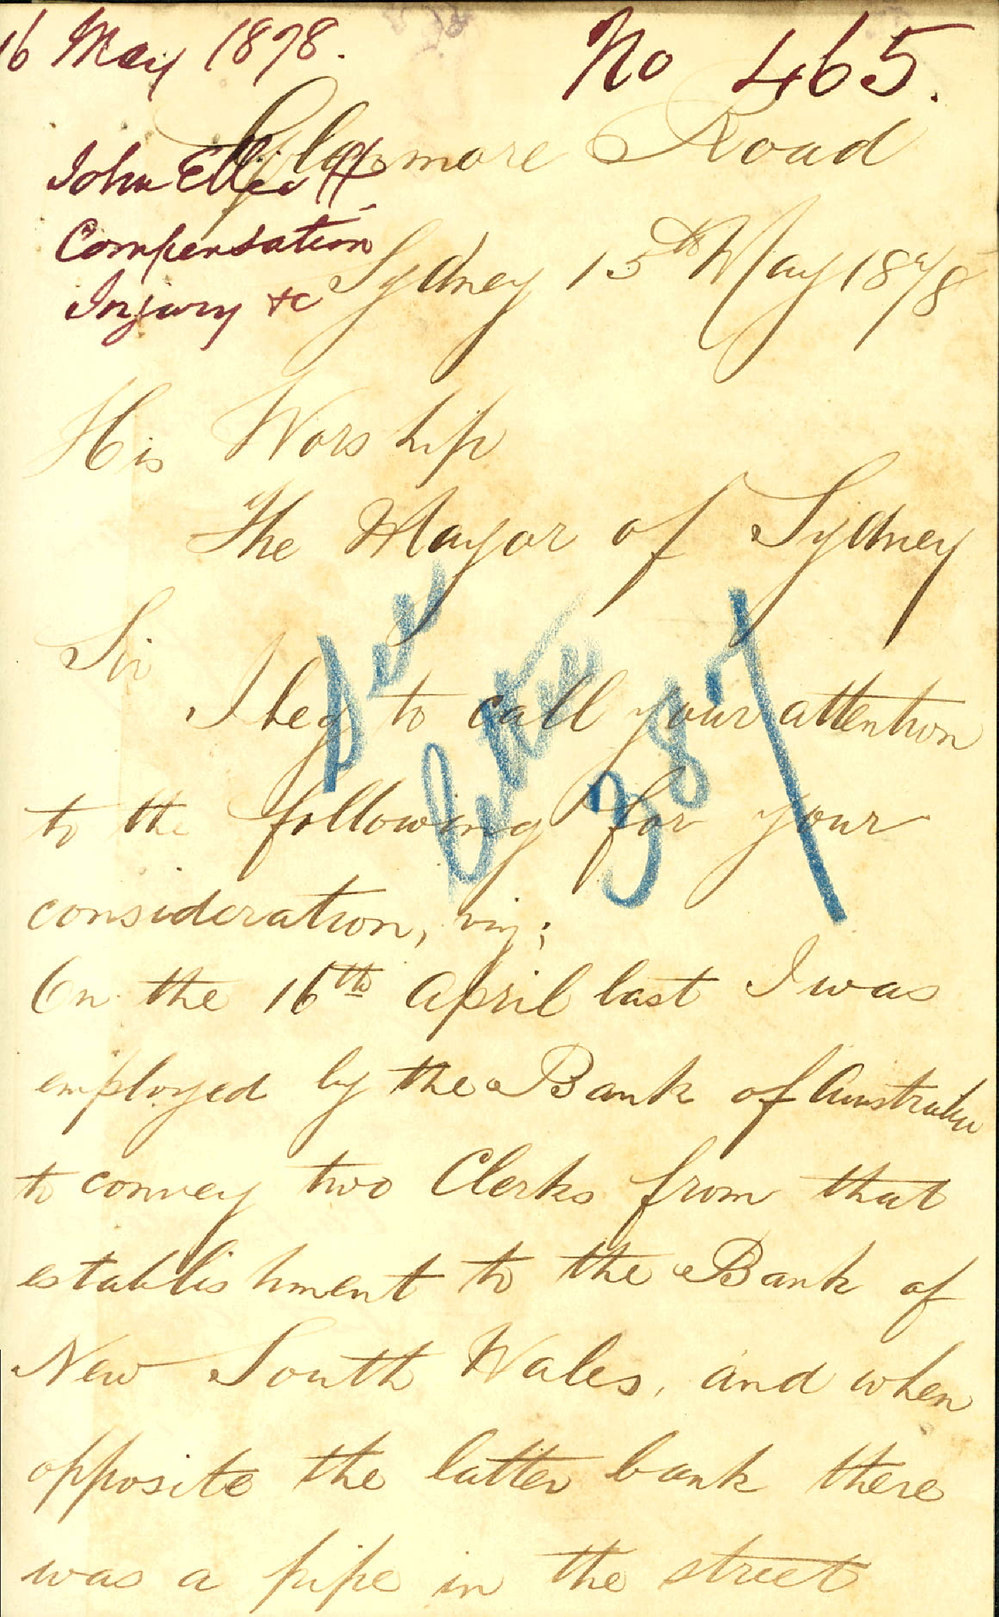 16 May 1878.
No 465.
Glenmore Road
John Ellis
Compensation
Injury &c
Sydney 15th May 1878
His Worship
The Mayor of Sydney
Sir
I beg to call your attention
to the following for your
consideration, viz;
On the 16th April last I was
employed by the Bank of Australia
to convey two Clerks from that
establishment to the Bank of
New South Wales, and when
opposite the latter bank there
was a pipe in the street
See
letter
387